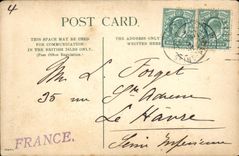 4
POST CARD.
THIS SPACE MAY BE USED
FOR COMMUNICATION
IN THE BRITISH ISLES ONLY.
(Post Office Regulation.)
THE ADDRESS TO BE
WRITTEN HERE
Mr L. Forget
35 rue Ste Adresse
Le Havre
FRANCE.
Seine Inférieure